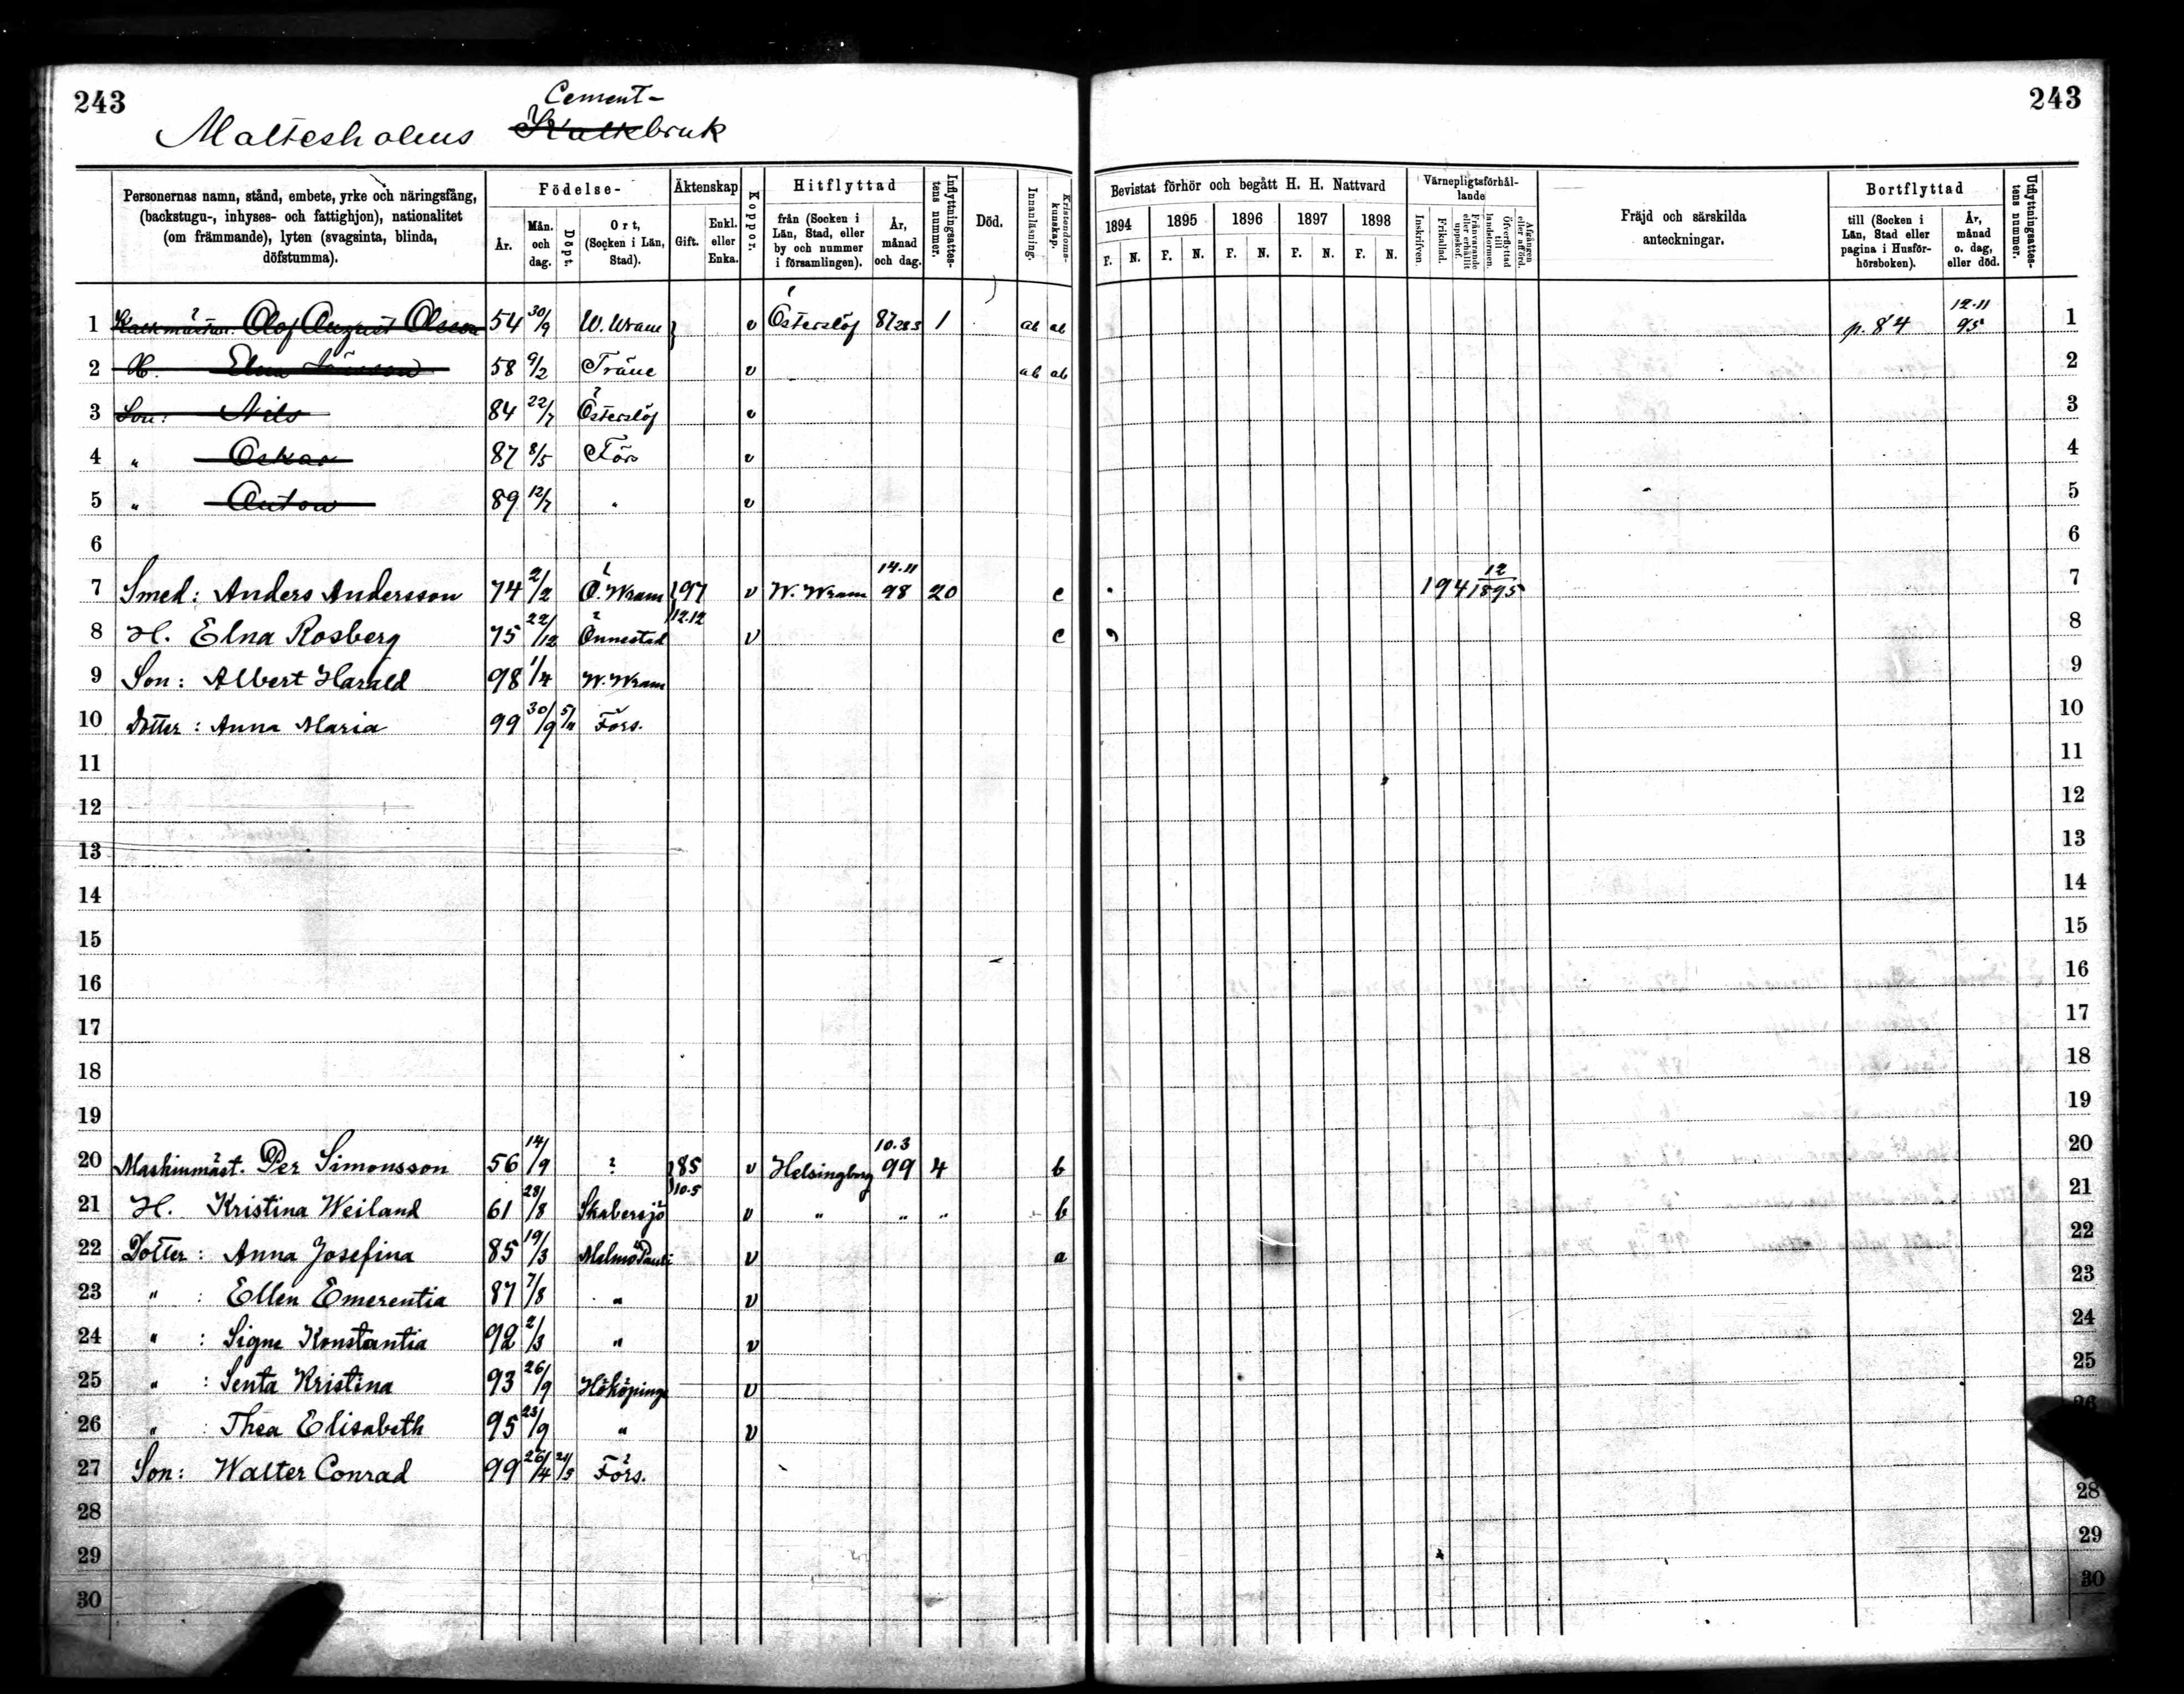 243
243
Cement-
Maltesholms Kalkbruk
Personernas namn, stånd, embete, yrke och näringsfång, (backstugu-, inhyses- och fattighjon), nationalitet (om främmande), lyten (svagsinta, blinda, döfstumma).
Födelse-
År. Mån. och dag. Döpt. Ort, (Socken i Län, Stad).
Äktenskap
Gift. Enkl. eller Enka.
Koppor.
Hitflyttad
från (Socken i Län, Stad, eller by och nummer i församlingen). År, månad och dag.
Inflyttningsattestens nummer.
Död.
Innanläsning.
Kristendomskunskap.
Bevistat förhör och begått H. H. Nattvard
1894 1895 1896 1897 1898
F. N. F. N. F. N. F. N. F. N.
Värnepligtsförhållande
Inskrifven. Frikallad. Frånvarande eller erhållit uppskof. Öfverflyttad till landstormen. Afgången eller afförd.
Fräjd och särskilda anteckningar.
Bortflyttad
till (Socken i Län, Stad eller pagina i Husförhörsboken). År, månad o. dag, eller död.
Utflyttningsattestens nummer.
1 Kalkmästar. Olof August Olsson 54 30/9 W. Wram v Österslöf 87 28 3 1 ab ab p. 84 12.11 95 1
2 H. Elna Jönsson 58 9/2 Träne v ab ab 2
3 Son: Nils 84 22/7 Österslöf v 3
4 " Oskar 87 8/5 Förs v 4
5 " Anton 89 12/7 " v 5
6 6
7 Smed: Anders Andersson 74 2/2 Ö. Wram 97 v W. Wram 14.11 98 20 c 194 12/1895 7
8 H. Elna Rosberg 75 22/12 Önnestad 12.12 v c 8
9 Son: Albert Harald 98 1/4 W. Wram 9
10 Dotter: Anna Maria 99 30/9 5/11 Förs. 10
11 11
12 12
13 13
14 14
15 15
16 16
17 17
18 18
19 19
20 Maskinmäst. Per Simonsson 56 14/9 ? 85 v Helsingborg 10.3 99 4 b 20
21 H. Kristina Weiland 61 28/8 Skabersjö 10.5 v " " " b 21
22 Dotter: Anna Josefina 85 19/3 Malmö Pauli v a 22
23 " : Ellen Emerentia 87 7/8 " v 23
24 " : Signe Konstantia 92 2/3 " v 24
25 " : Senta Kristina 93 26/9 Hököpinge v 25
26 " : Thea Elisabeth 95 23/9 " v 26
27 Son: Walter Conrad 99 26/4 21/5 Förs.
28 28
29 29
30 30